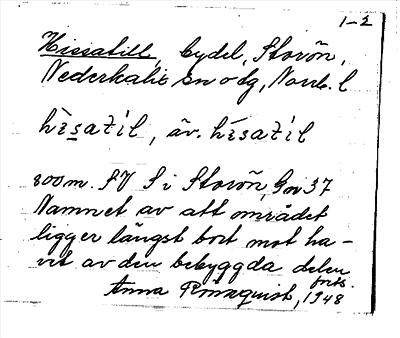 1-2
Hissatill, bydel, Storön,
Nederkalix sn o dg, Norrb. l
hìsat́il, äv. hísat́il
800 m. SV S i Storön, Gv 37
Namnet av att området
ligger längst bort mot ha-
vet av den bebyggda delen
forts.
Anna Rönnquist, 1948